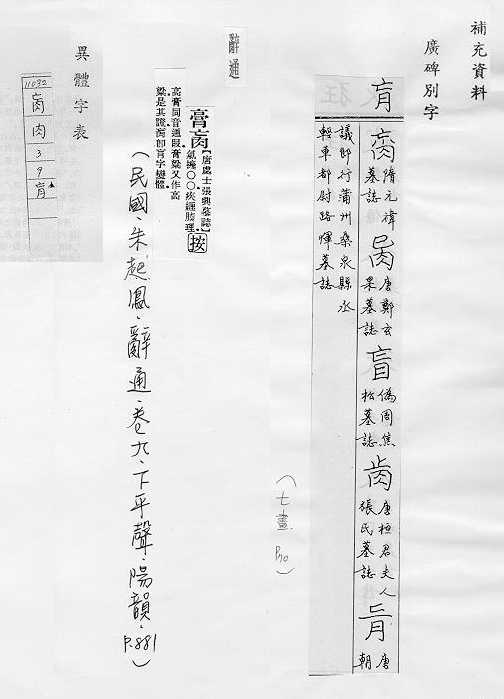 補充資料
廣碑別字
肓
隋元禕墓誌
唐鄭玄果墓誌
偽周焦松墓誌
唐桓君夫人張氏墓誌
唐朝
議郎行蒲州桑泉縣丞
輕車都尉路惲墓誌
(七畫 P10)
辭通
膏肓【唐處士張興墓誌】氣擁〇〇疾纏腠理。按
高膏同音通叚膏粱又作高
粱是其證肓卽肓字變體。
(民國.朱起鳳.辭通.卷九.下平聲.陽韻.P.881)
異體字表
11032
肉
3
9
肓